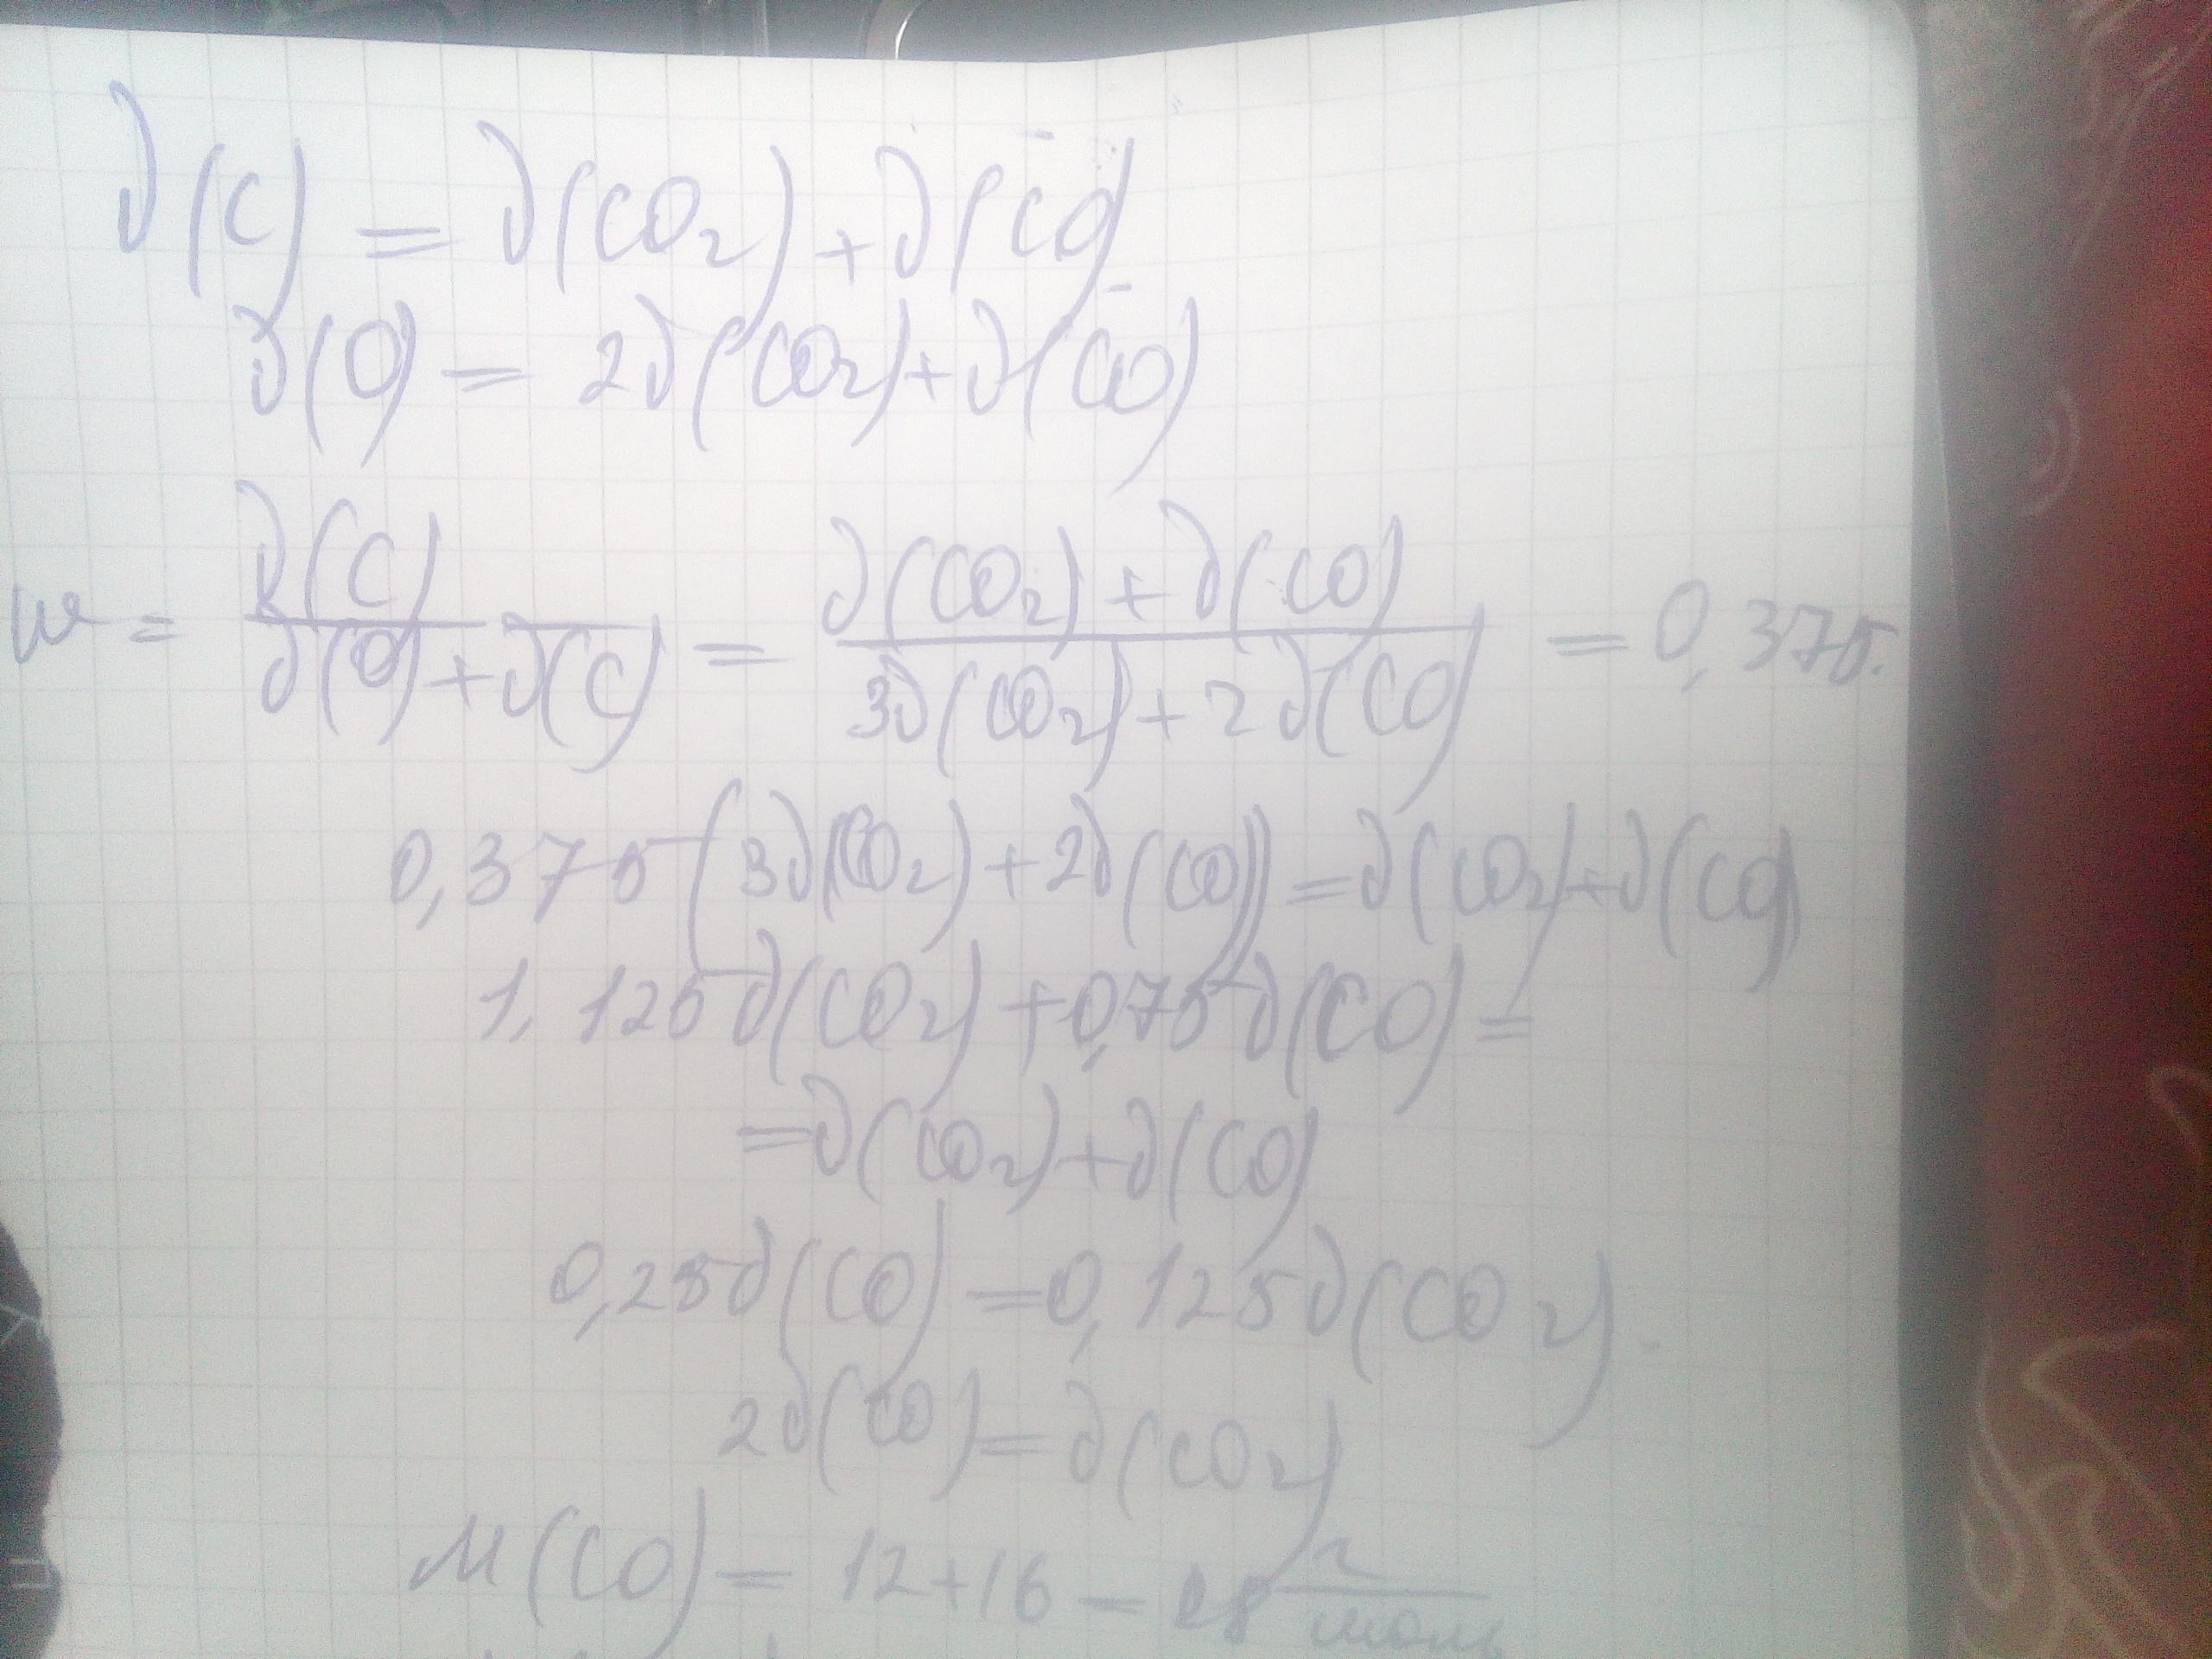 ∂(C) = ∂(CO₂) + ∂(CO)
∂(O) = 2∂(CO₂) + ∂(CO)
w = ∂(C) / (∂(O) + ∂(C)) = (∂(CO₂) + ∂(CO)) / (3∂(CO₂) + 2∂(CO)) = 0,375.
0,375 (3∂(CO₂) + 2∂(CO)) = ∂(CO₂) + ∂(CO)
1,125∂(CO₂) + 0,75∂(CO) =
= ∂(CO₂) + ∂(CO)
0,25∂(CO) = 0,125∂(CO₂).
2∂(CO) = ∂(CO₂)
M(CO) = 12+16 = 28 г/моль